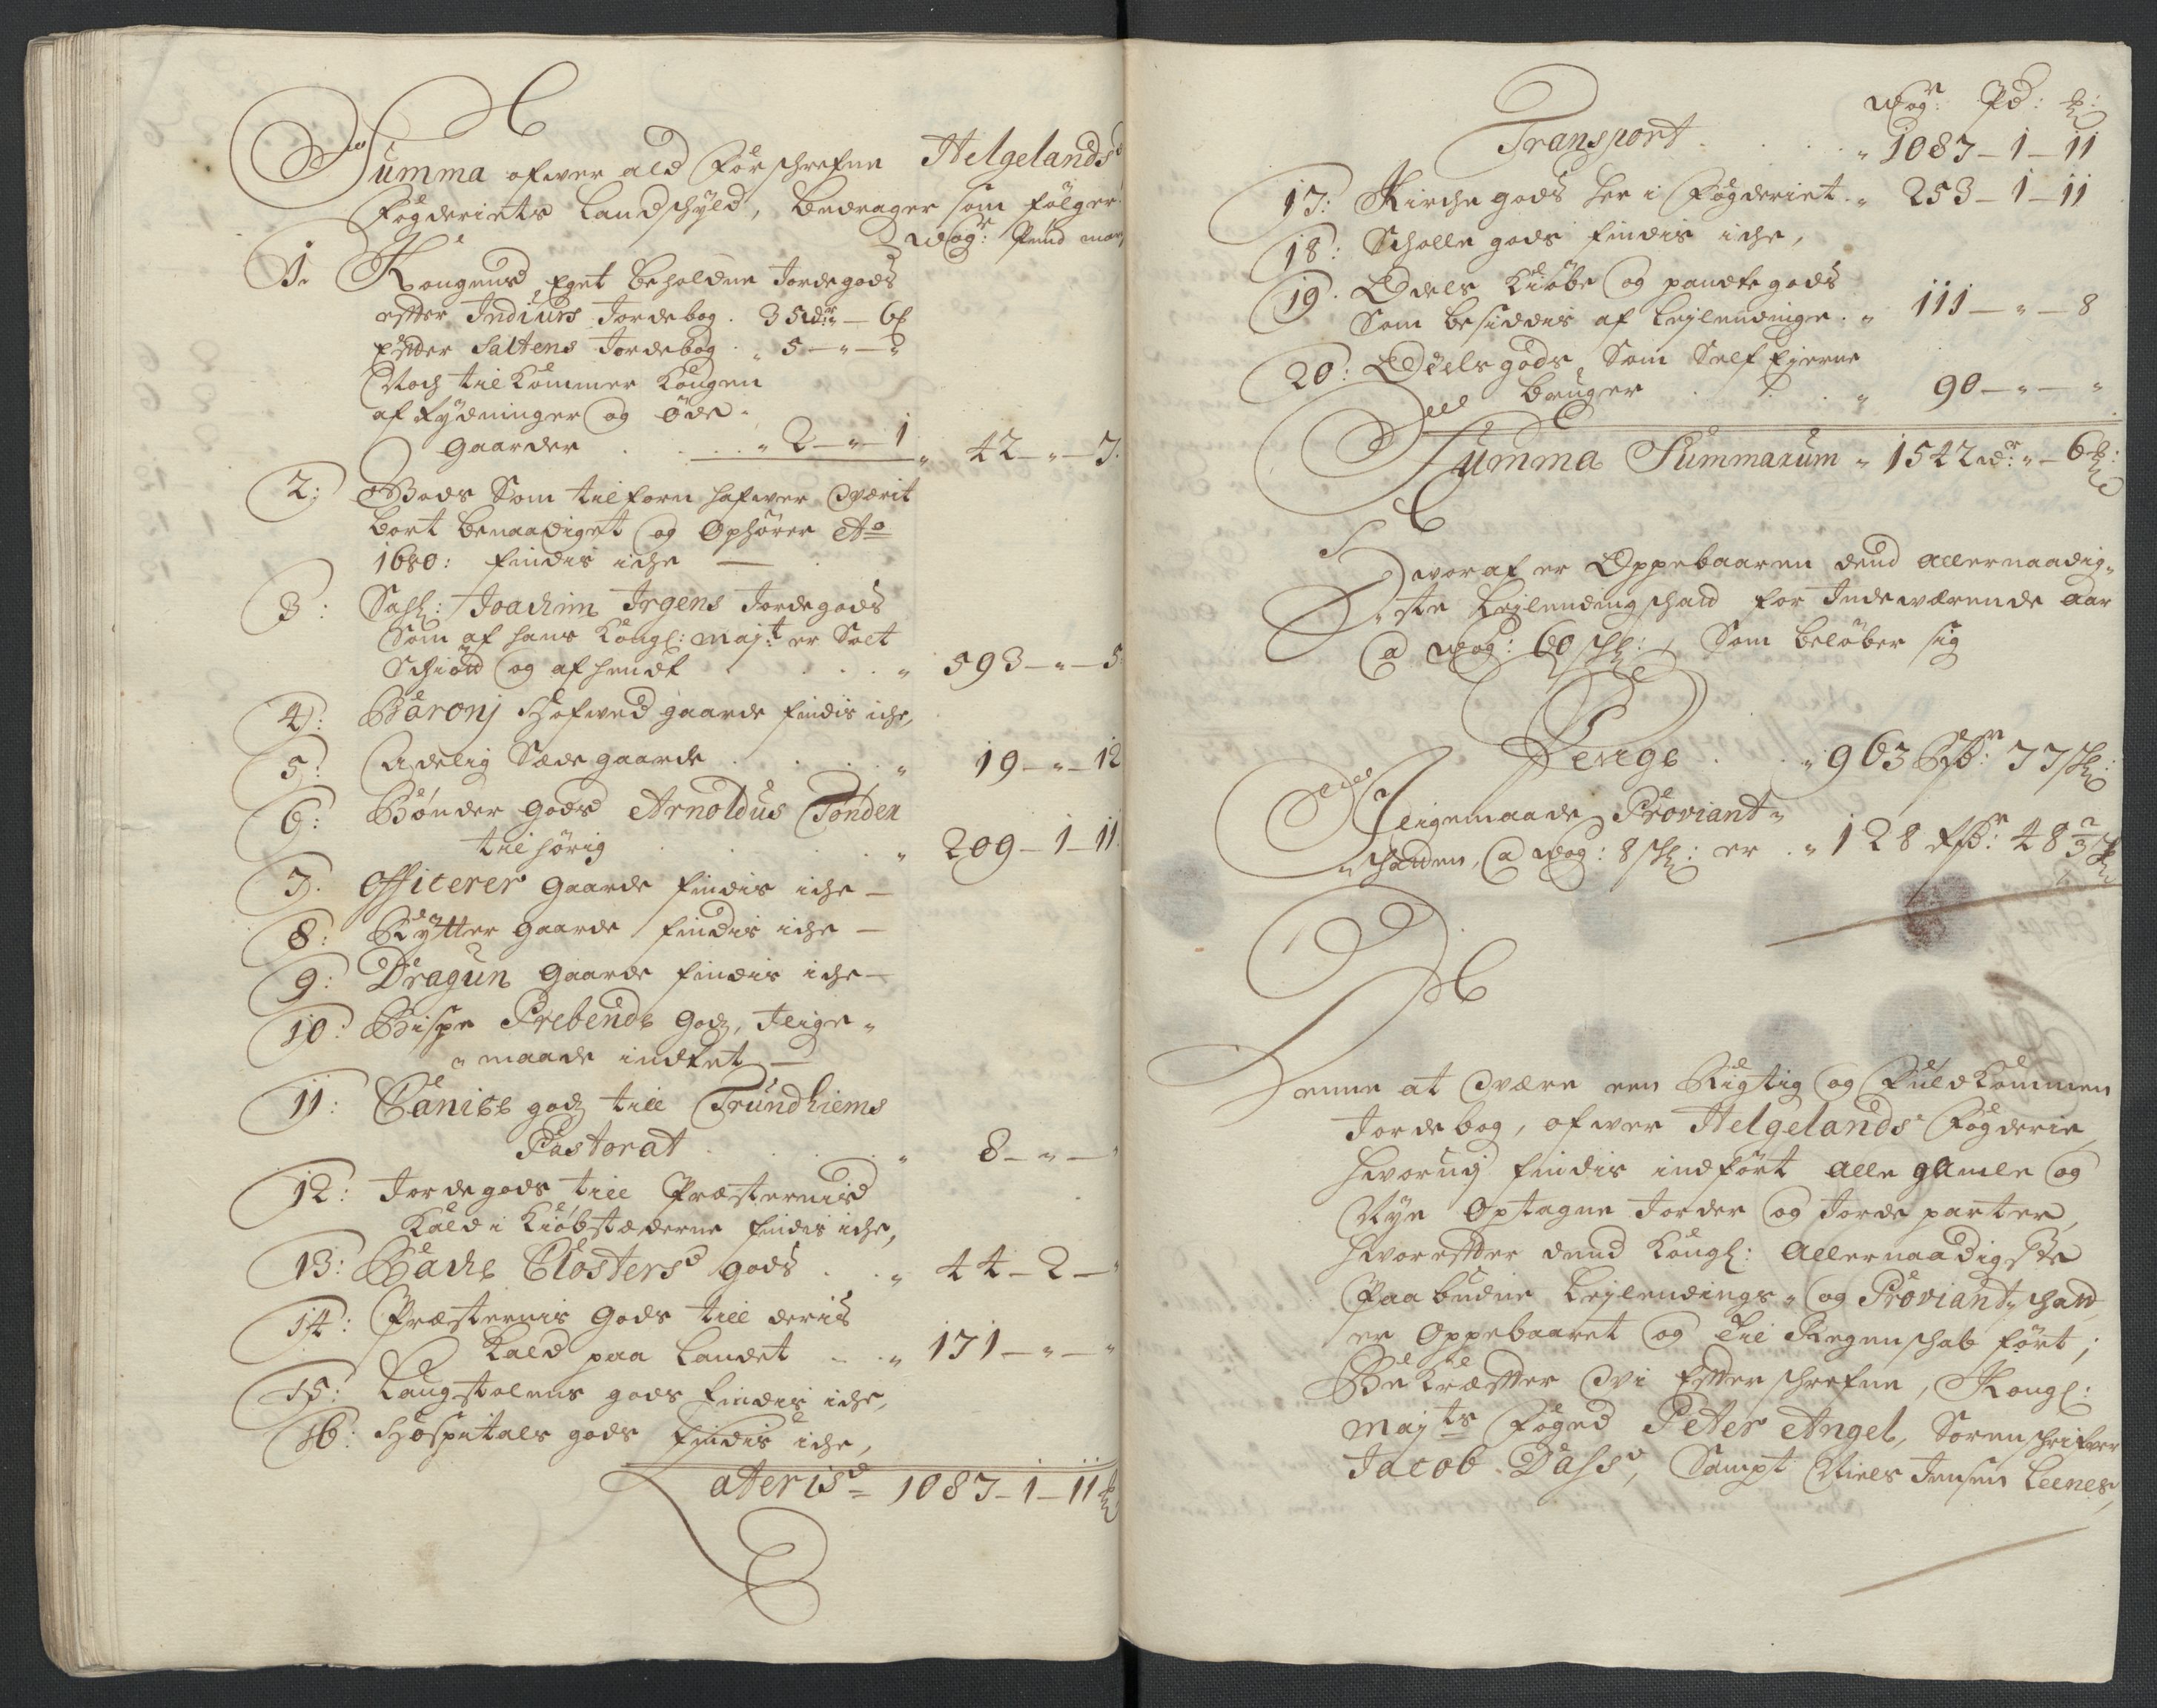 Summa ofwer ald Forschrefne Helgelands
Fögderiets Landschÿld, bedrager som fölger
wog: Pund mrk
1. Kongens Eget beholdne Jordegods
efter Indiurs Jordebog. 35 wr: „ — 6
Efter Saltens Jordebog „ 5 — „ — „
Noch til kommer kongen
af Rÿdninger og öde-
gaarder . . . „ 2 — „ — 1 „ 42 — „ — 7.
2: Gods Som tilforn hafwer værit
bort benaadiget og Ophörer Ao
1680: findis iche —
3: Sahl: Joachim Irgens Jordegods
Som af hans kongl: mayt: er Solt
Schiött og afhendt . . . „ 593 — „ — 5
4: Baronj Hofwed gaarde findis iche,
5: Adelig Sæde gaarde . . . „ 19 — „ — 12
6: Bönder gods Arnoldus Tönder
tilhörig . . . „ 209 — 1 — 11
7. Officerer gaarde findis iche —
8: Rÿtter gaarde findis iche —
9: Dragun gaarde findis iche —
10: Bispe Prebends godz, Leige-
„ maade indtet —
11: Canice godz till Trundhiems
Pastorat . . . „ 8 — „ —
12: Jordegods till Præsternis
kald i kiöbstæderne findis iche,
13: Bache Closters gods . . „ 44 — 2 —
14: Præsternis gods till deris
kald paa Landet . . „ 171 — „ — „
15: Laugstolens gods findis iche,
16: Hospitals gods findis iche,
Lateris 1087 — 1 — 11
wogr: Pd:
Transport . . . „ 1087 — 1 — 11
17: Kirche gods her i Fögderiet „ 253 — 1 — 11
18: Scholle gods findis iche,
19. Odels kiöbe og pandte gods
Som besiddis af Leylendinge . „ 111 — „ — 8
20: Odels gods, Som Self Eyerne
bruger . . . „ 90 — „ — „
Summa Summarum „ 1542 wr: „ — 6
Hworaf er Oppebaaren dend allernaadig-
ste Leylendingschatt for Indewærende aar
a wog: 60 sk:, Som belöber sig
Penge . . „ 963 Rdr: 77 sk:
Leigemaade Proviant-
schatten, a wog: 8 sk: er . „ 128 Rdr: 48 2/3 sk
Denne at være een Rigtig og Fuldkommen
Jordebog, ofwer Helgelands Fögderie,
hworudj findis indfört alle gamle og
Nÿe Optagne Jorder og Jorde parter,
hworefter dend kongl: Allernaadigste
Paabudne Leylendings- og Proviant-schatt
er Oppebaaret og til Regenschab fört;
Bekræfter wi Efterschrefne, Kongl:
mayts Foged Peter Angel, Sorenschrifwer
Jacob Dass, Sampt Niels Jensen Leenes,